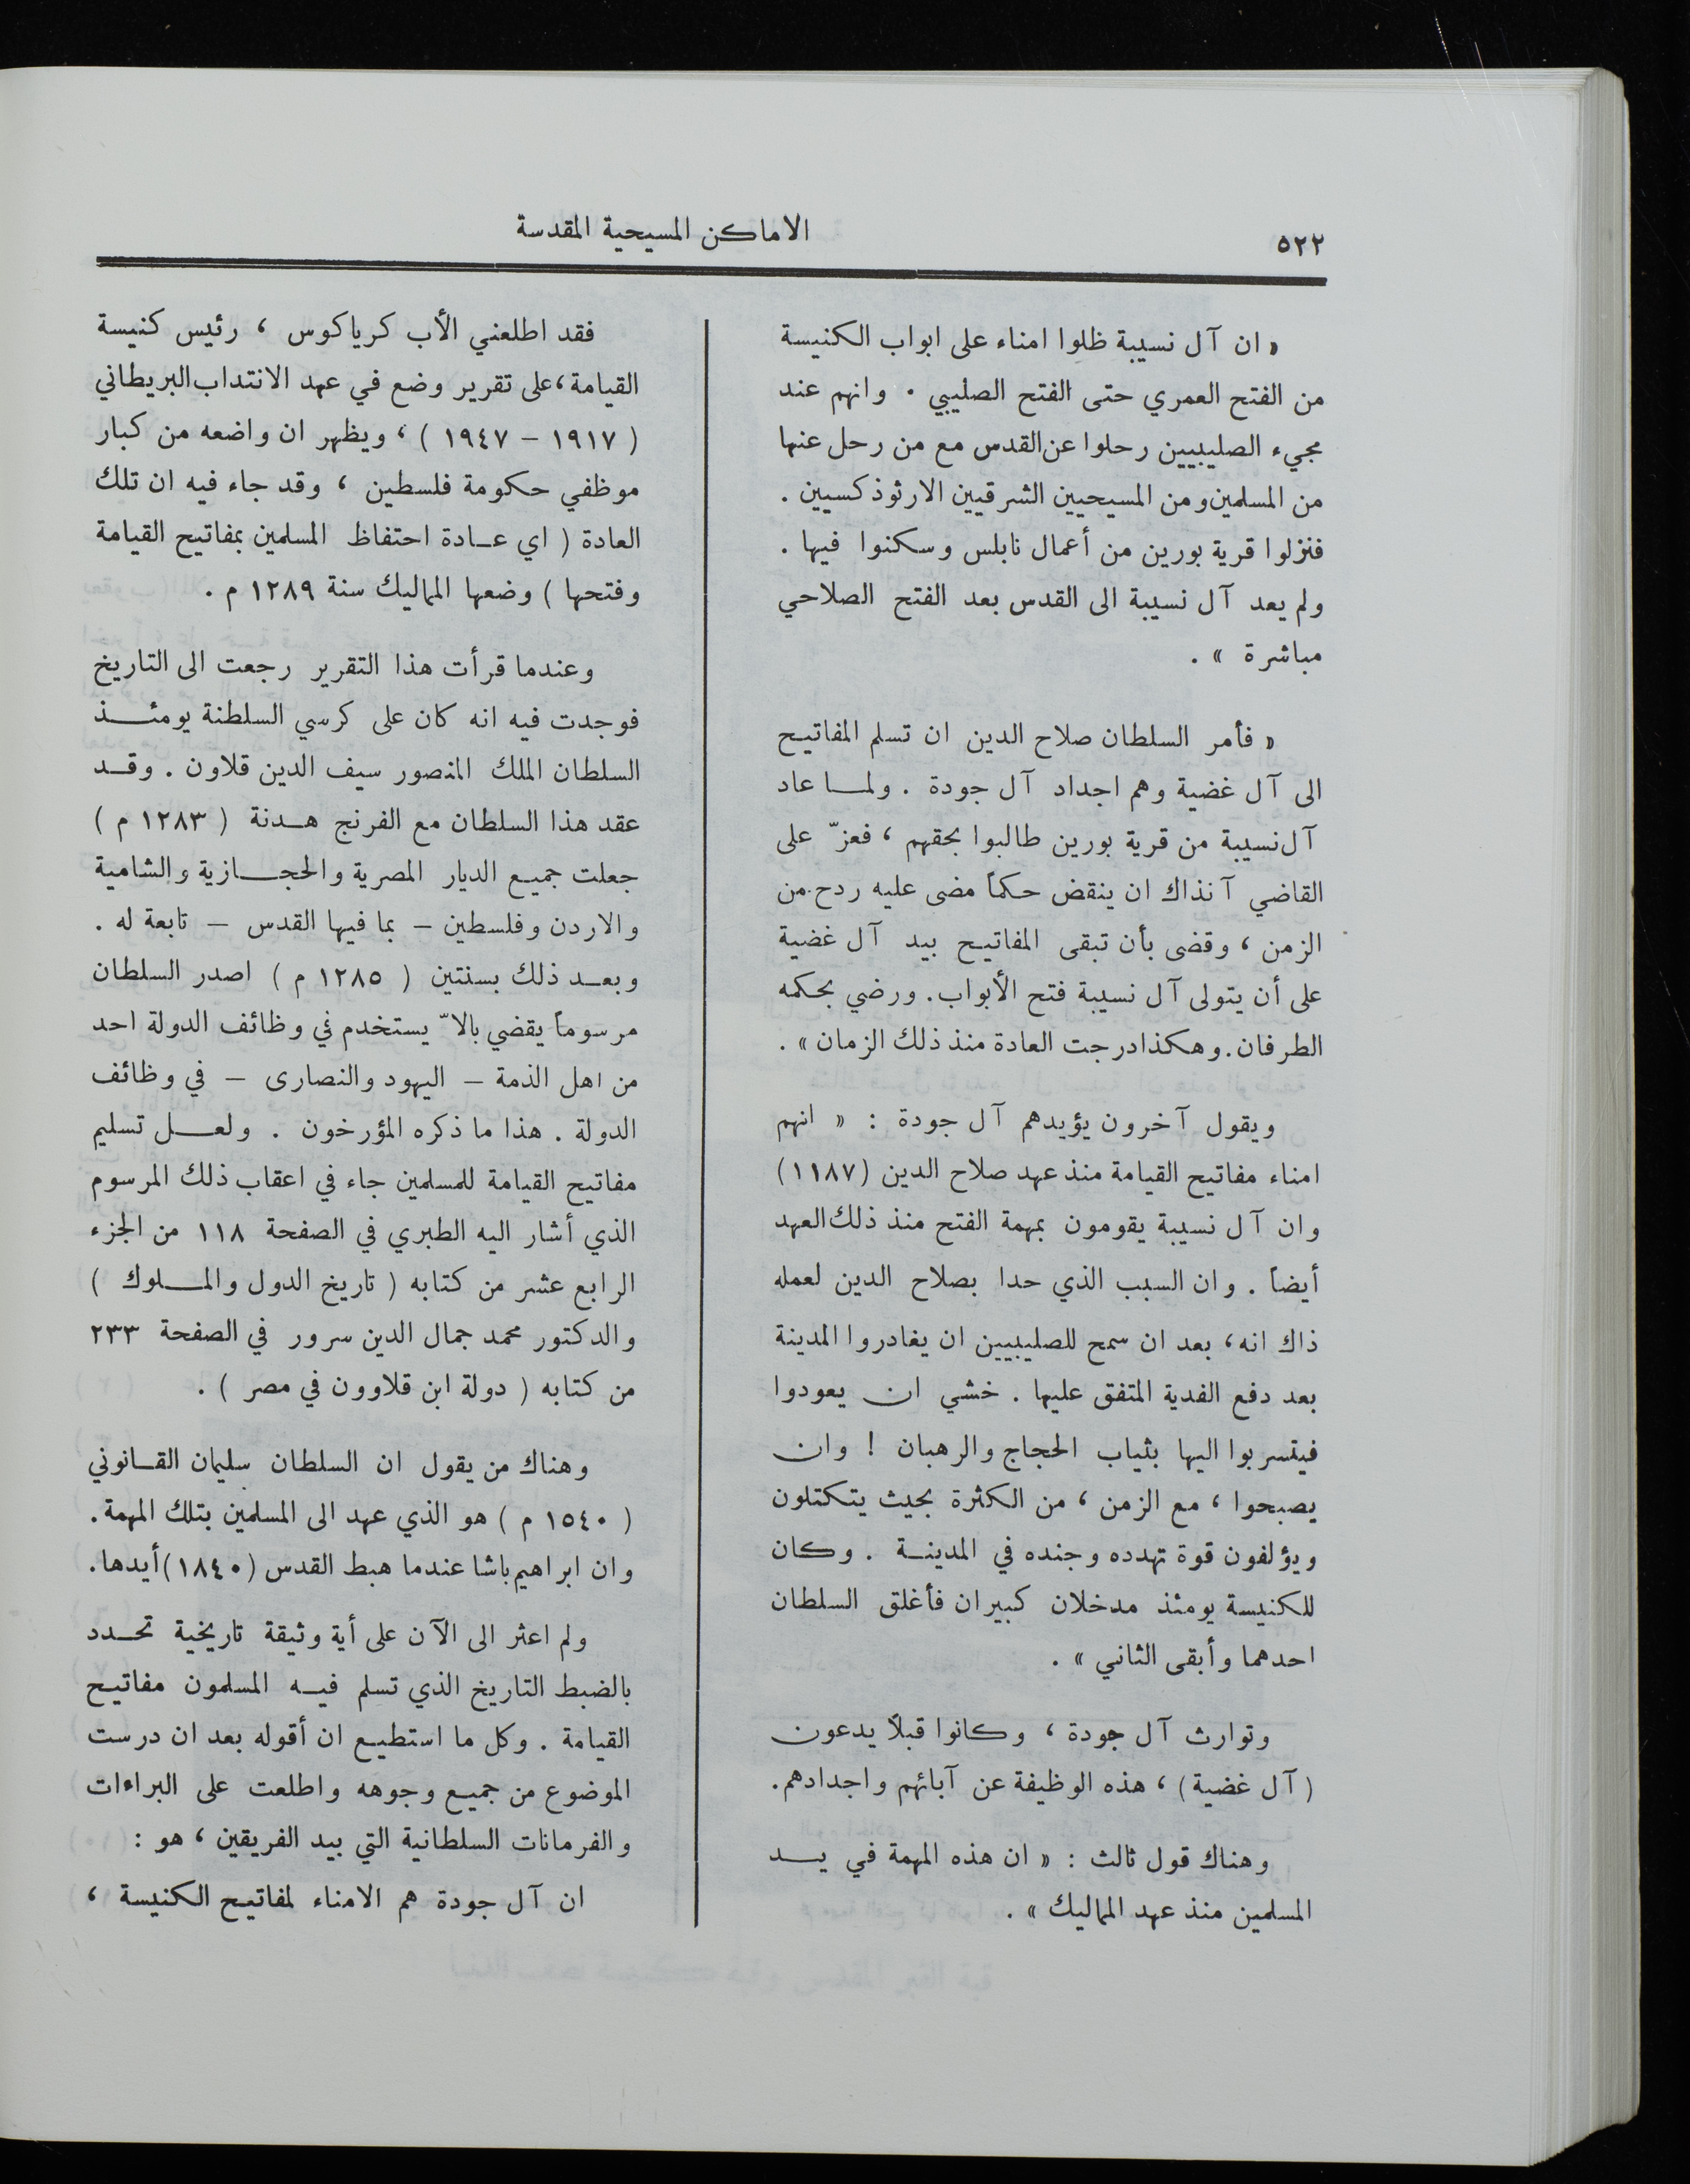 ٥٢٢
الاماكن المسيحية المقدسة
« ان آل نسيبة ظلوا امناء على ابواب الكنيسة
من الفتح العمري حتى الفتح الصليبي . وانهم عند
مجيء الصليبيين رحلوا عن القدس مع من رحل عنها
من المسلمين ومن المسيحيين الشرقيين الارثوذكسيين .
فنزلوا قرية بورين من أعمال نابلس وسكنوا فيها .
ولم يعد آل نسيبة الى القدس بعد الفتح الصلاحي
مباشرة » .
« فأمر السلطان صلاح الدين ان تسلم المفاتيح
الى آل غضية وهم اجداد آل جودة . ولما عاد
آل نسيبة من قرية بورين طالبوا بحقهم ، فعزّ على
القاضي آنذاك ان ينقض حكماً مضى عليه ردح من
الزمن ، وقضى بأن تبقى المفاتيح بيد آل غضية
على أن يتولى آل نسيبة فتح الأبواب. ورضي بحكمه
الطرفان. وهكذا درجت العادة منذ ذلك الزمان » .
ويقول آخرون يؤيدهم آل جودة : « انهم
امناء مفاتيح القيامة منذ عهد صلاح الدين (١١٨٧)
وان آل نسيبة يقومون بمهمة الفتح منذ ذلك العهد
أيضاً . وان السبب الذي حدا بصلاح الدين لعمله
ذاك انه ، بعد ان سمح للصليبيين ان يغادروا المدينة
بعد دفع الفدية المتفق عليها . خشي ان يعودوا
فيتسربوا اليها بثياب الحجاج والرهبان ! وان
يصبحوا ، مع الزمن ، من الكثرة بحيث يتكتلون
ويؤلفون قوة تهدده وجنده في المدينة . وكان
للكنيسة يومئذ مدخلان كبيران فأغلق السلطان
احدهما وأبقى الثاني » .
وتوارث آل جودة ، وكانوا قبلاً يدعون
( آل غضية ) ، هذه الوظيفة عن آبائهم واجدادهم.
وهناك قول ثالث : « ان هذه المهمة في يد
المسلمين منذ عهد المماليك » .
فقد اطلعني الأب كرياكوس ، رئيس كنيسة
القيامة ، على تقرير وضع في عهد الانتداب البريطاني
( ١٩١٧ – ١٩٤٧ ) ، ويظهر ان واضعه من كبار
موظفي حكومة فلسطين ، وقد جاء فيه ان تلك
العادة ( اي عادة احتفاظ المسلمين بمفاتيح القيامة
وفتحها ) وضعها المماليك سنة ١٢٨٩ م .
وعندما قرأت هذا التقرير رجعت الى التاريخ
فوجدت فيه انه كان على كرسي السلطنة يومئذ
السلطان الملك المنصور سيف الدين قلاون . وقد
عقد هذا السلطان مع الفرنج هدنة ( ١٢٨٣ م )
جعلت جميع الديار المصرية والحجازية والشامية
والاردن وفلسطين – بما فيها القدس – تابعة له .
وبعد ذلك بسنتين ( ١٢٨٥ م ) اصدر السلطان
مرسوماً يقضي بالاّ يستخدم في وظائف الدولة احد
من اهل الذمة – اليهود والنصارى – في وظائف
الدولة . هذا ما ذكره المؤرخون . ولعل تسليم
مفاتيح القيامة للمسلمين جاء في اعقاب ذلك المرسوم
الذي أشار اليه الطبري في الصفحة ١١٨ من الجزء
الرابع عشر من كتابه ( تاريخ الدول والملوك )
والدكتور محمد جمال الدين سرور في الصفحة ٢٣٣
من كتابه ( دولة ابن قلاوون في مصر ) .
وهناك من يقول ان السلطان سليمان القانوني
( ١٥٤٠ م ) هو الذي عهد الى المسلمين بتلك المهمة.
وان ابراهيم باشا عندما هبط القدس (١٨٤٠) أيدها.
ولم اعثر الى الآن على أية وثيقة تاريخية تحدد
بالضبط التاريخ الذي تسلم فيه المسلمون مفاتيح
القيامة . وكل ما استطيع ان أقوله بعد ان درست
الموضوع من جميع وجوهه واطلعت على البراءات
والفرمانات السلطانية التي بيد الفريقين ، هو :
ان آل جودة هم الامناء لمفاتيح الكنيسة ،